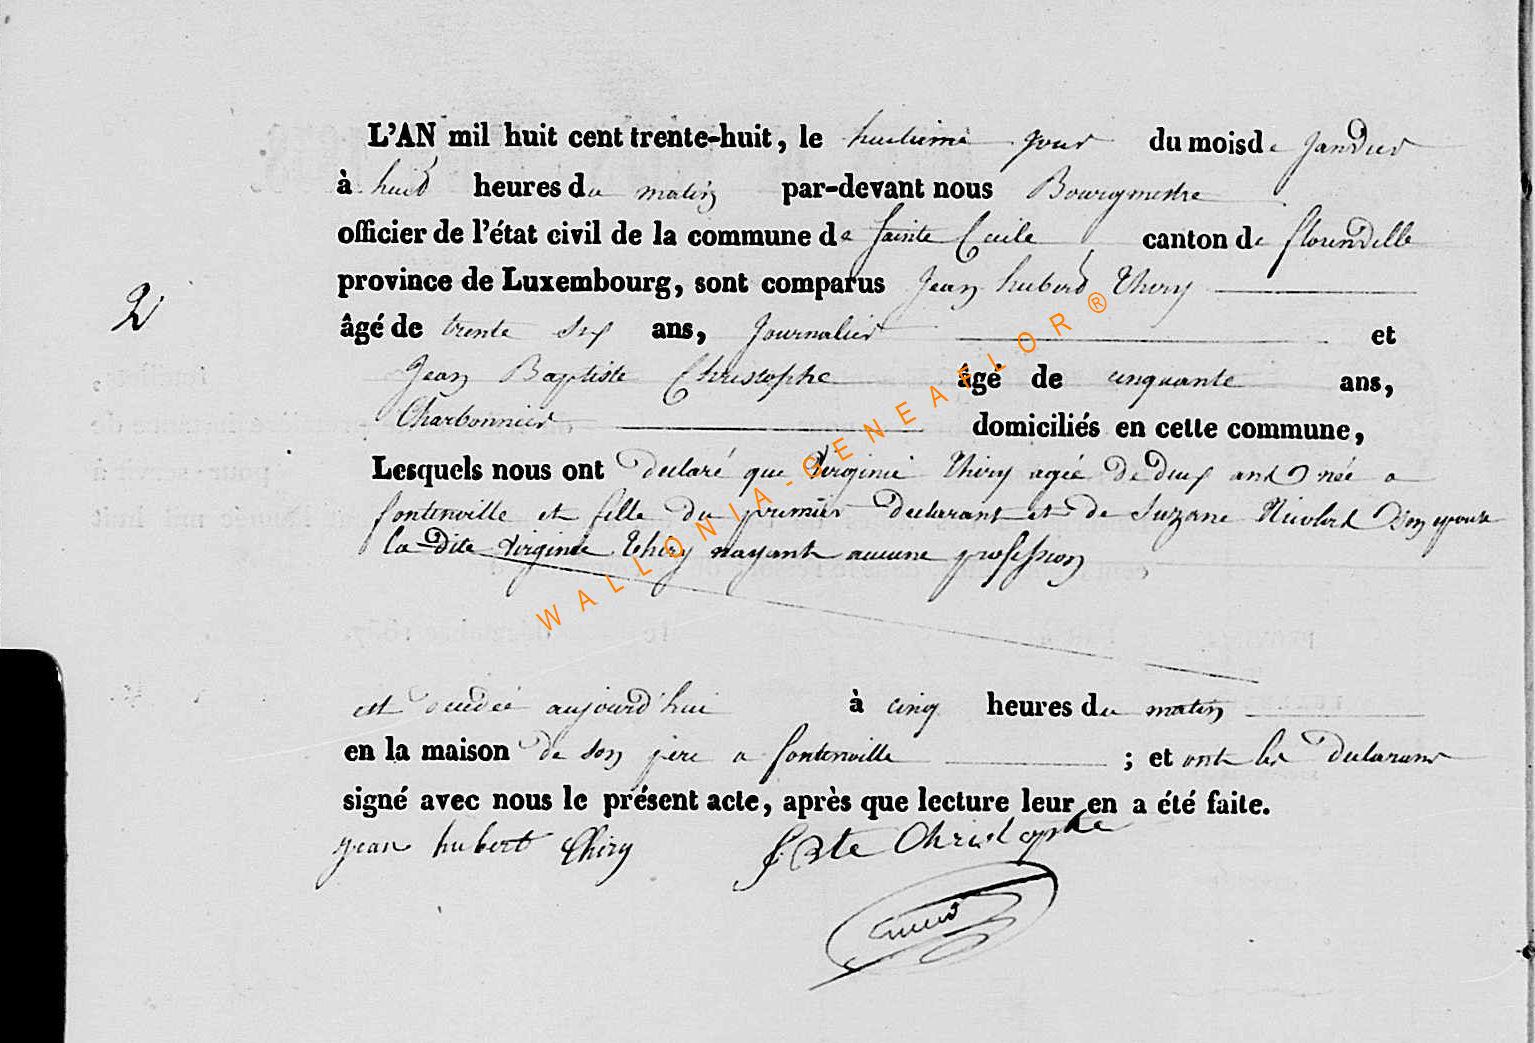 L'AN mil huit cent trente-huit, le huitieme jour du mois de janvier
à huit heures du matin par-devant nous Bourgmestre
officier de l'état civil de la commune de Sainte Cecile canton de florenville
province de Luxembourg, sont comparus Jean hubert Thiry
âgé de trente six ans, Journalier et
Jean Baptiste Christophe âgé de cinquante ans,
Charbonnier domiciliés en cette commune,
2
Lesquels nous ont declaré que Virginie Thiry agée de deux ans née a
fontenoille et fille du premier declarant et de Suzane son epouse
la dite Virginie Thiry nayant aucune profession
est decedée aujourd'hui à cinq heures du matin
en la maison de son pere a fontenoille ; et ont les declarans
signé avec nous le présent acte, après que lecture leur en a été faite.
jean hubert thiry J Bte Christophe
WALLONIA-GENEAFLOR®